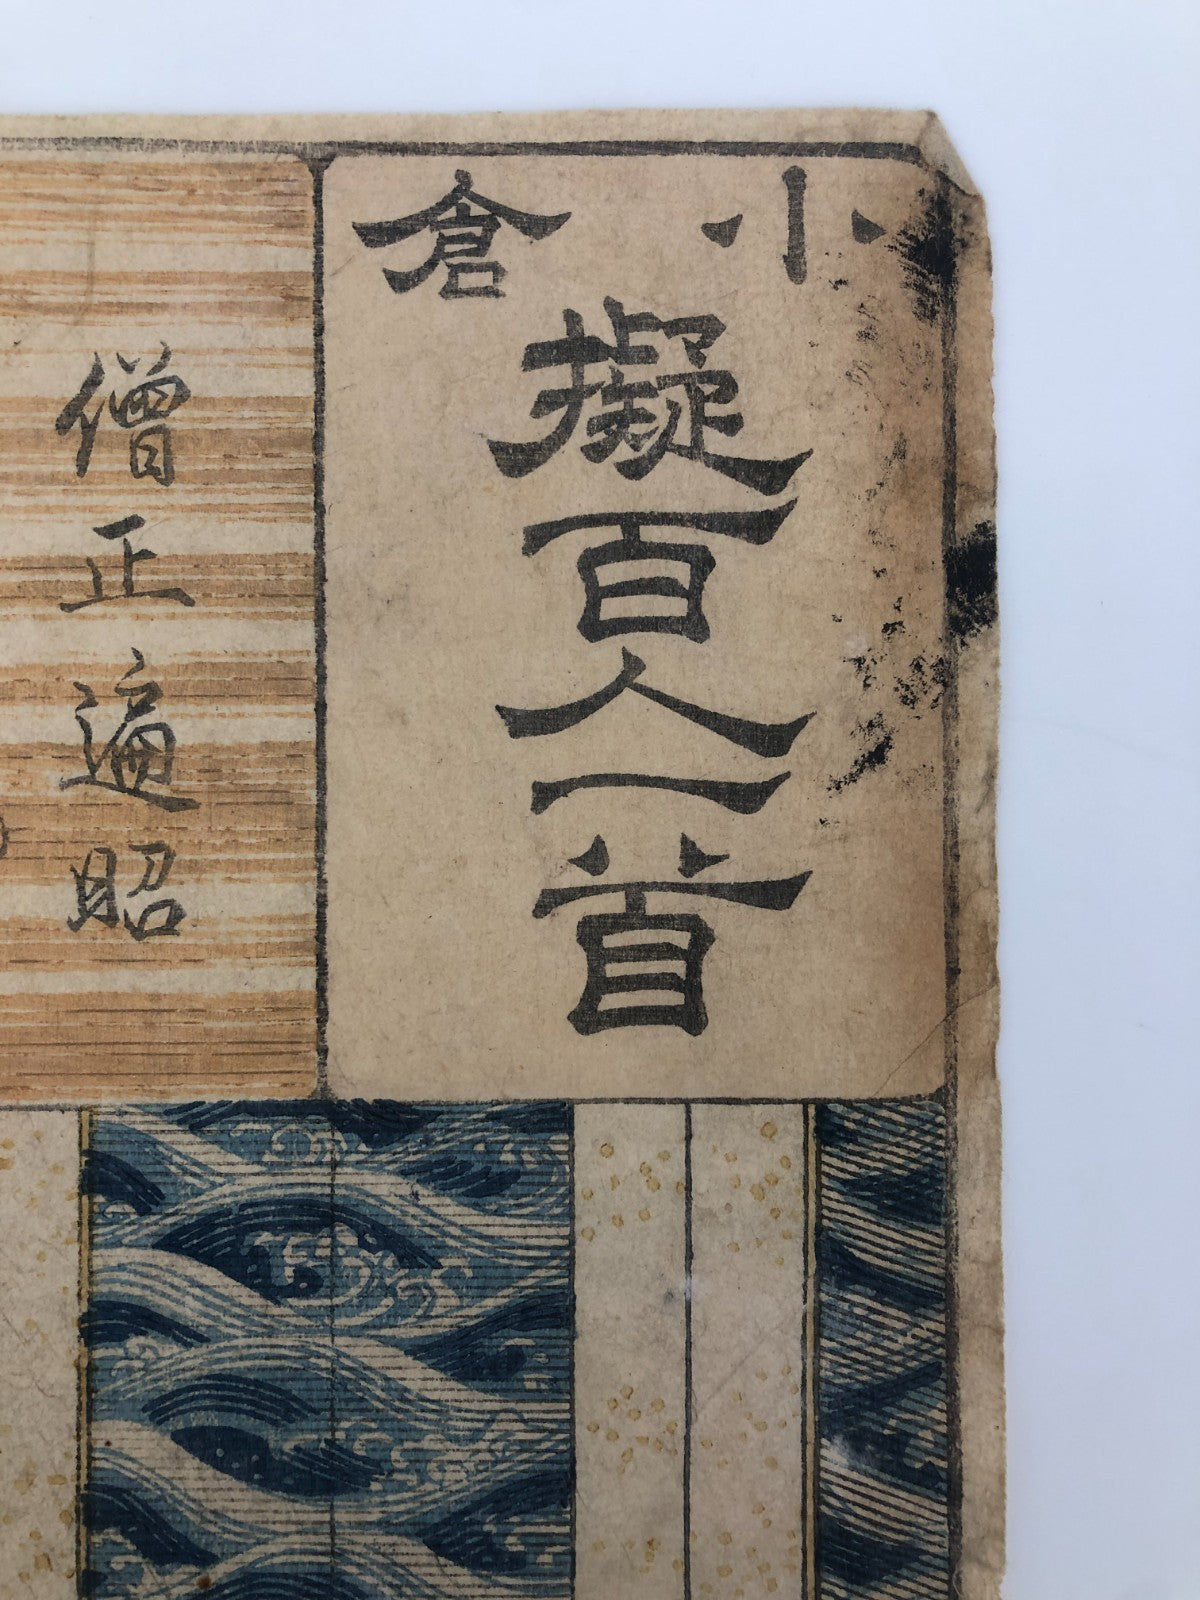 小倉
擬百人一首
僧正遍昭